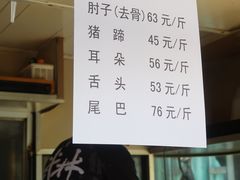 肘子(去骨)63元/斤
猪 蹄 45 元/斤
耳 朵 56 元/斤
舌 头 53 元/斤
尾 巴 76 元/斤